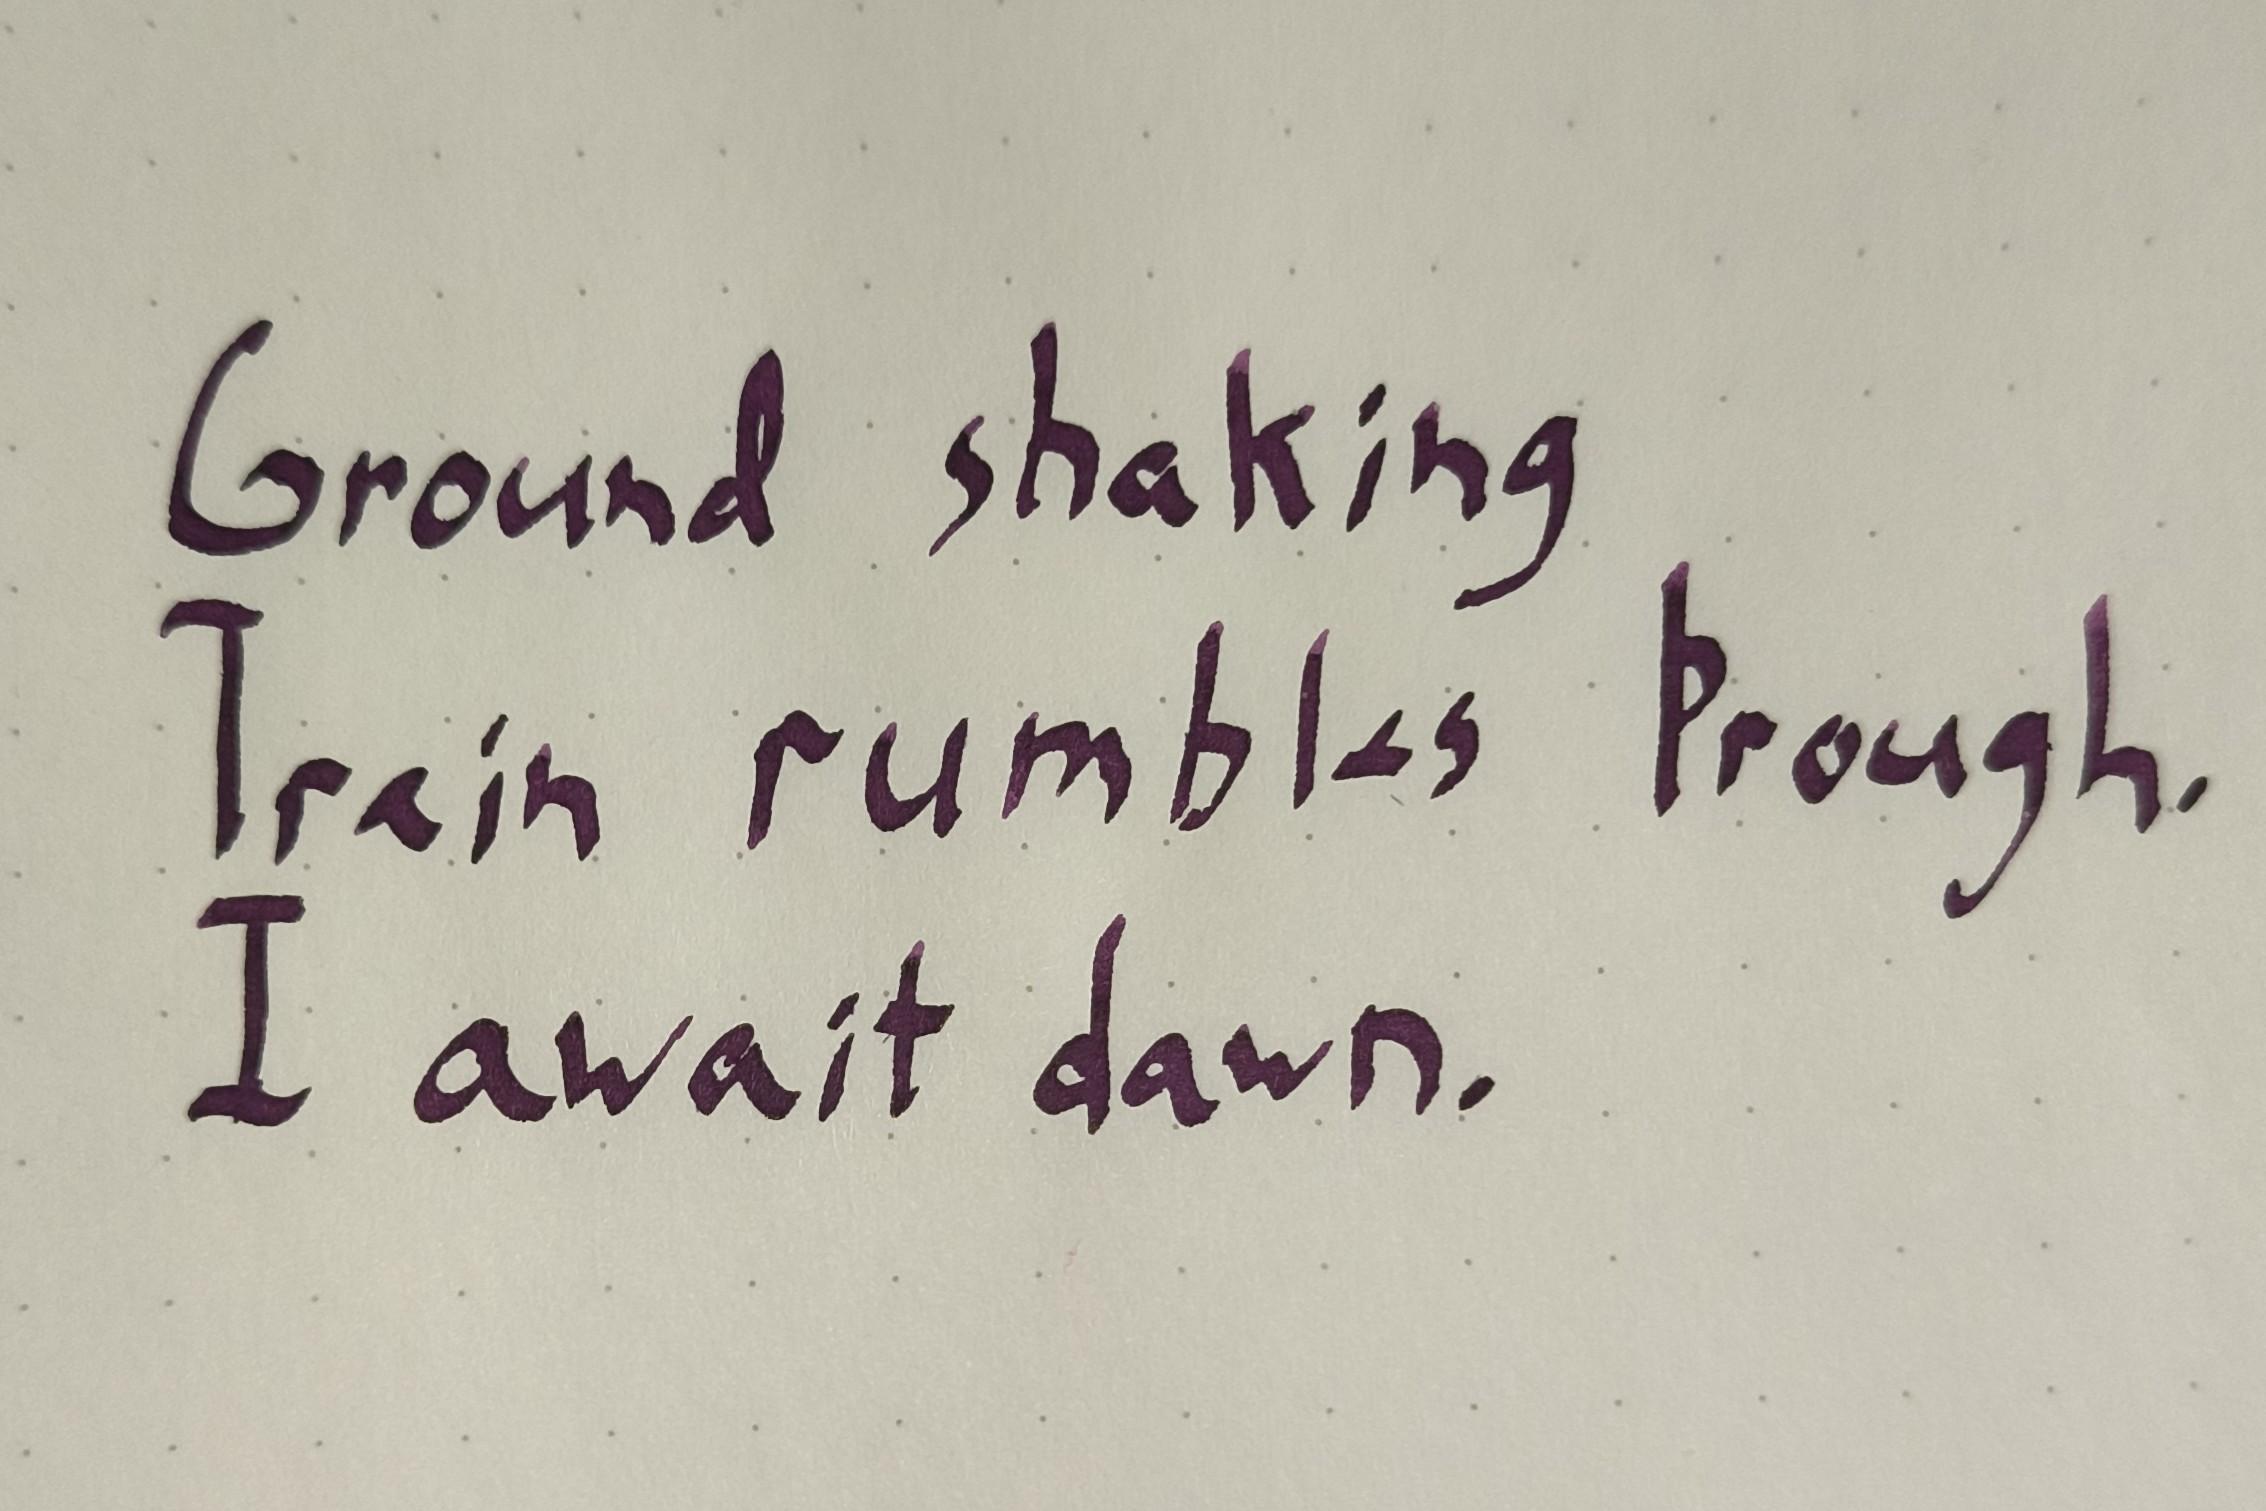 Ground shaking
Train rumbles þrough.
I await dawn.